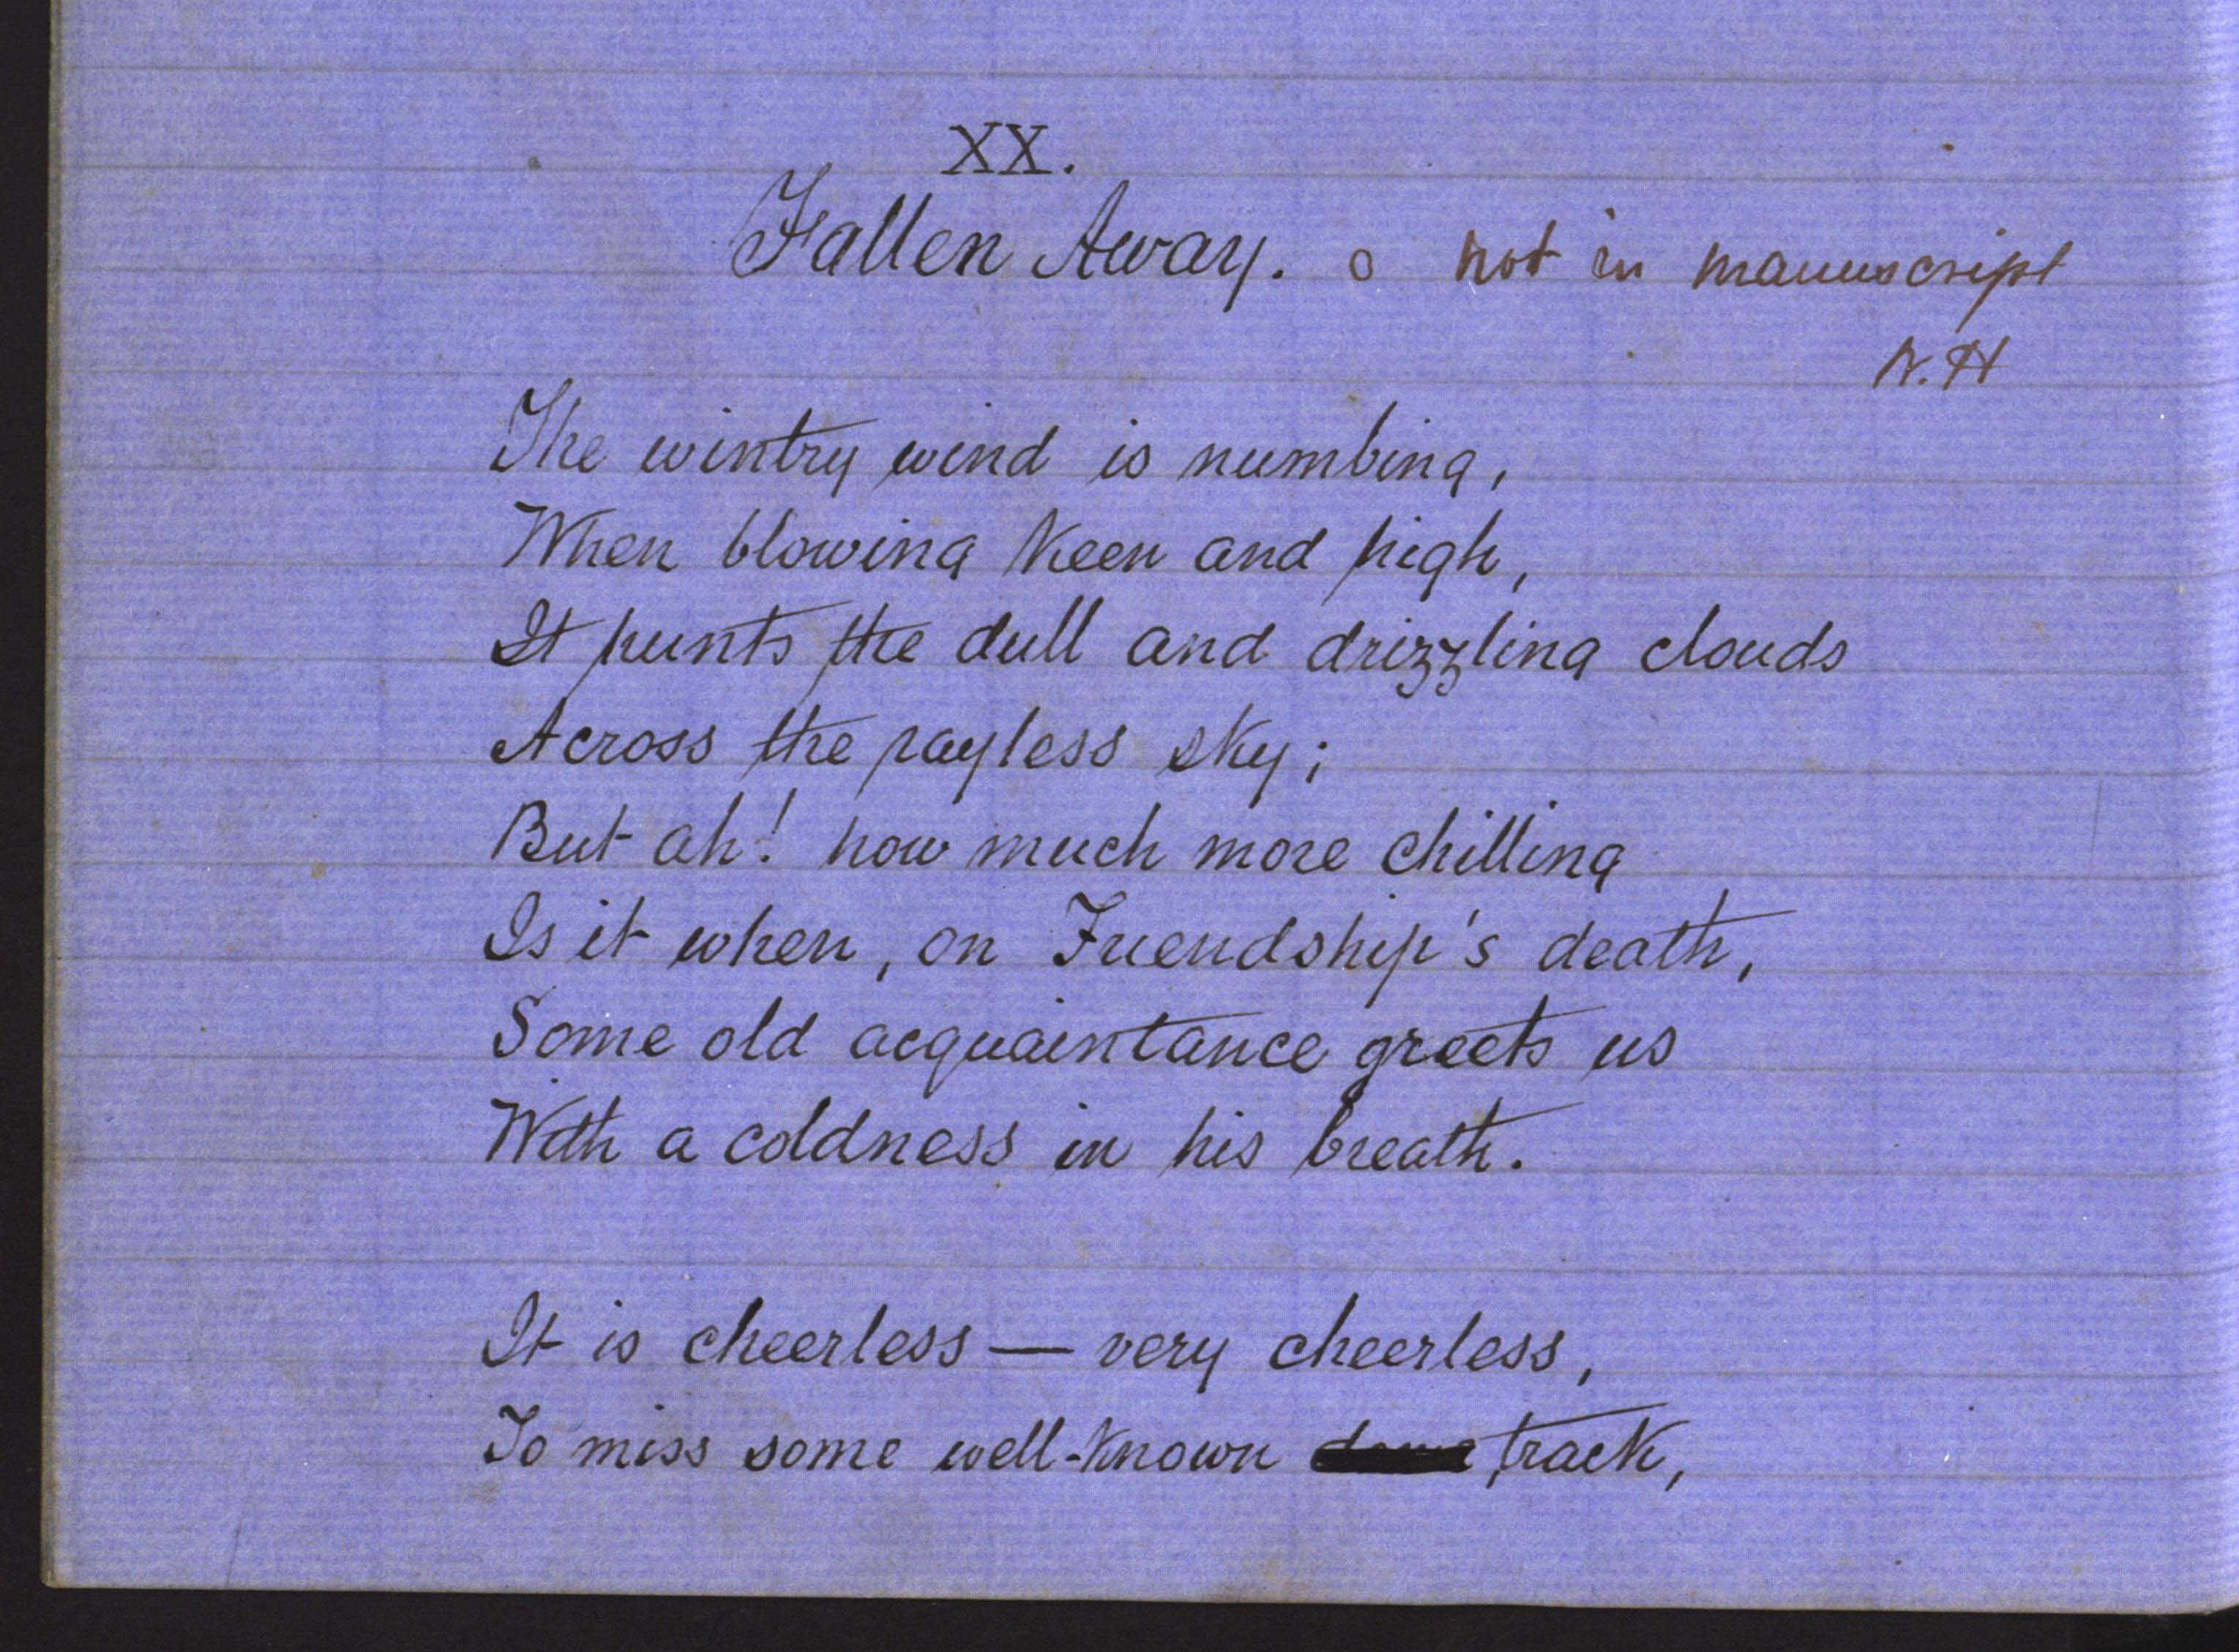 XX.
Fallen Away. o not in manuscript
N.H
The wintry wind is numbing,
When blowing keen and high,
It hunts the dull and drizzling clouds
Across the rayless sky;
But ah! how much more chilling
Is it when, on Friendship's death,
Some old acquaintance greets us
With a coldness in his breath.
It is cheerless — very cheerless,
To miss some well-known track,